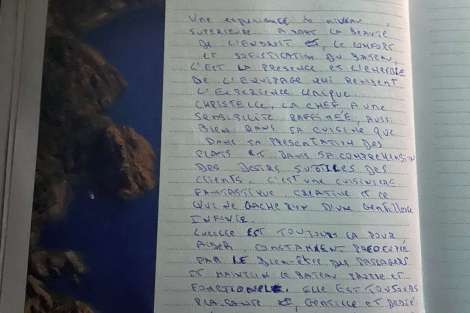 Une expérience de niveau
supérieure. Avant la beauté
de l'endroit et, le confort
et sofistication du bateau,
c'est la présence et l'énergie
de l'équipage qui rendent
l'expérience unique.
Christelle, la chef a une
sensibilité raffinée, aussi
bien dans sa cuisine que
dans sa présentation des
plats et dans sa comprehension
des desirs subtiles des
clients. C'est une cuisinière
fantastique, creative et ce
qui ne gache rien d'une gentillesse
infinie.
est toujours là pour
aider constament préocupée
par le bien-être des passagers
et maintien le bateau propre et
fonctionnele. Elle est toujours
plaisante et, gentille et